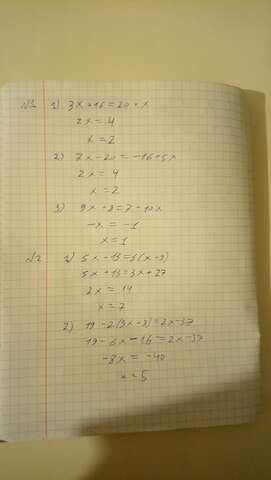 №1 1) 3x+16=20+x
2x = 4
x = 2
2) 7x-20 = -16+5x
2x = 4
x = 2
3) 9x+8=7+10x
-x = -1
x = 1
№2 1) 5x+13=3(x+9)
5x+13=3x+27
2x = 14
x = 7
2) 19-2(3x-8)=2x-37
19-6x-16=2x-37
-8x = -40
x = 5